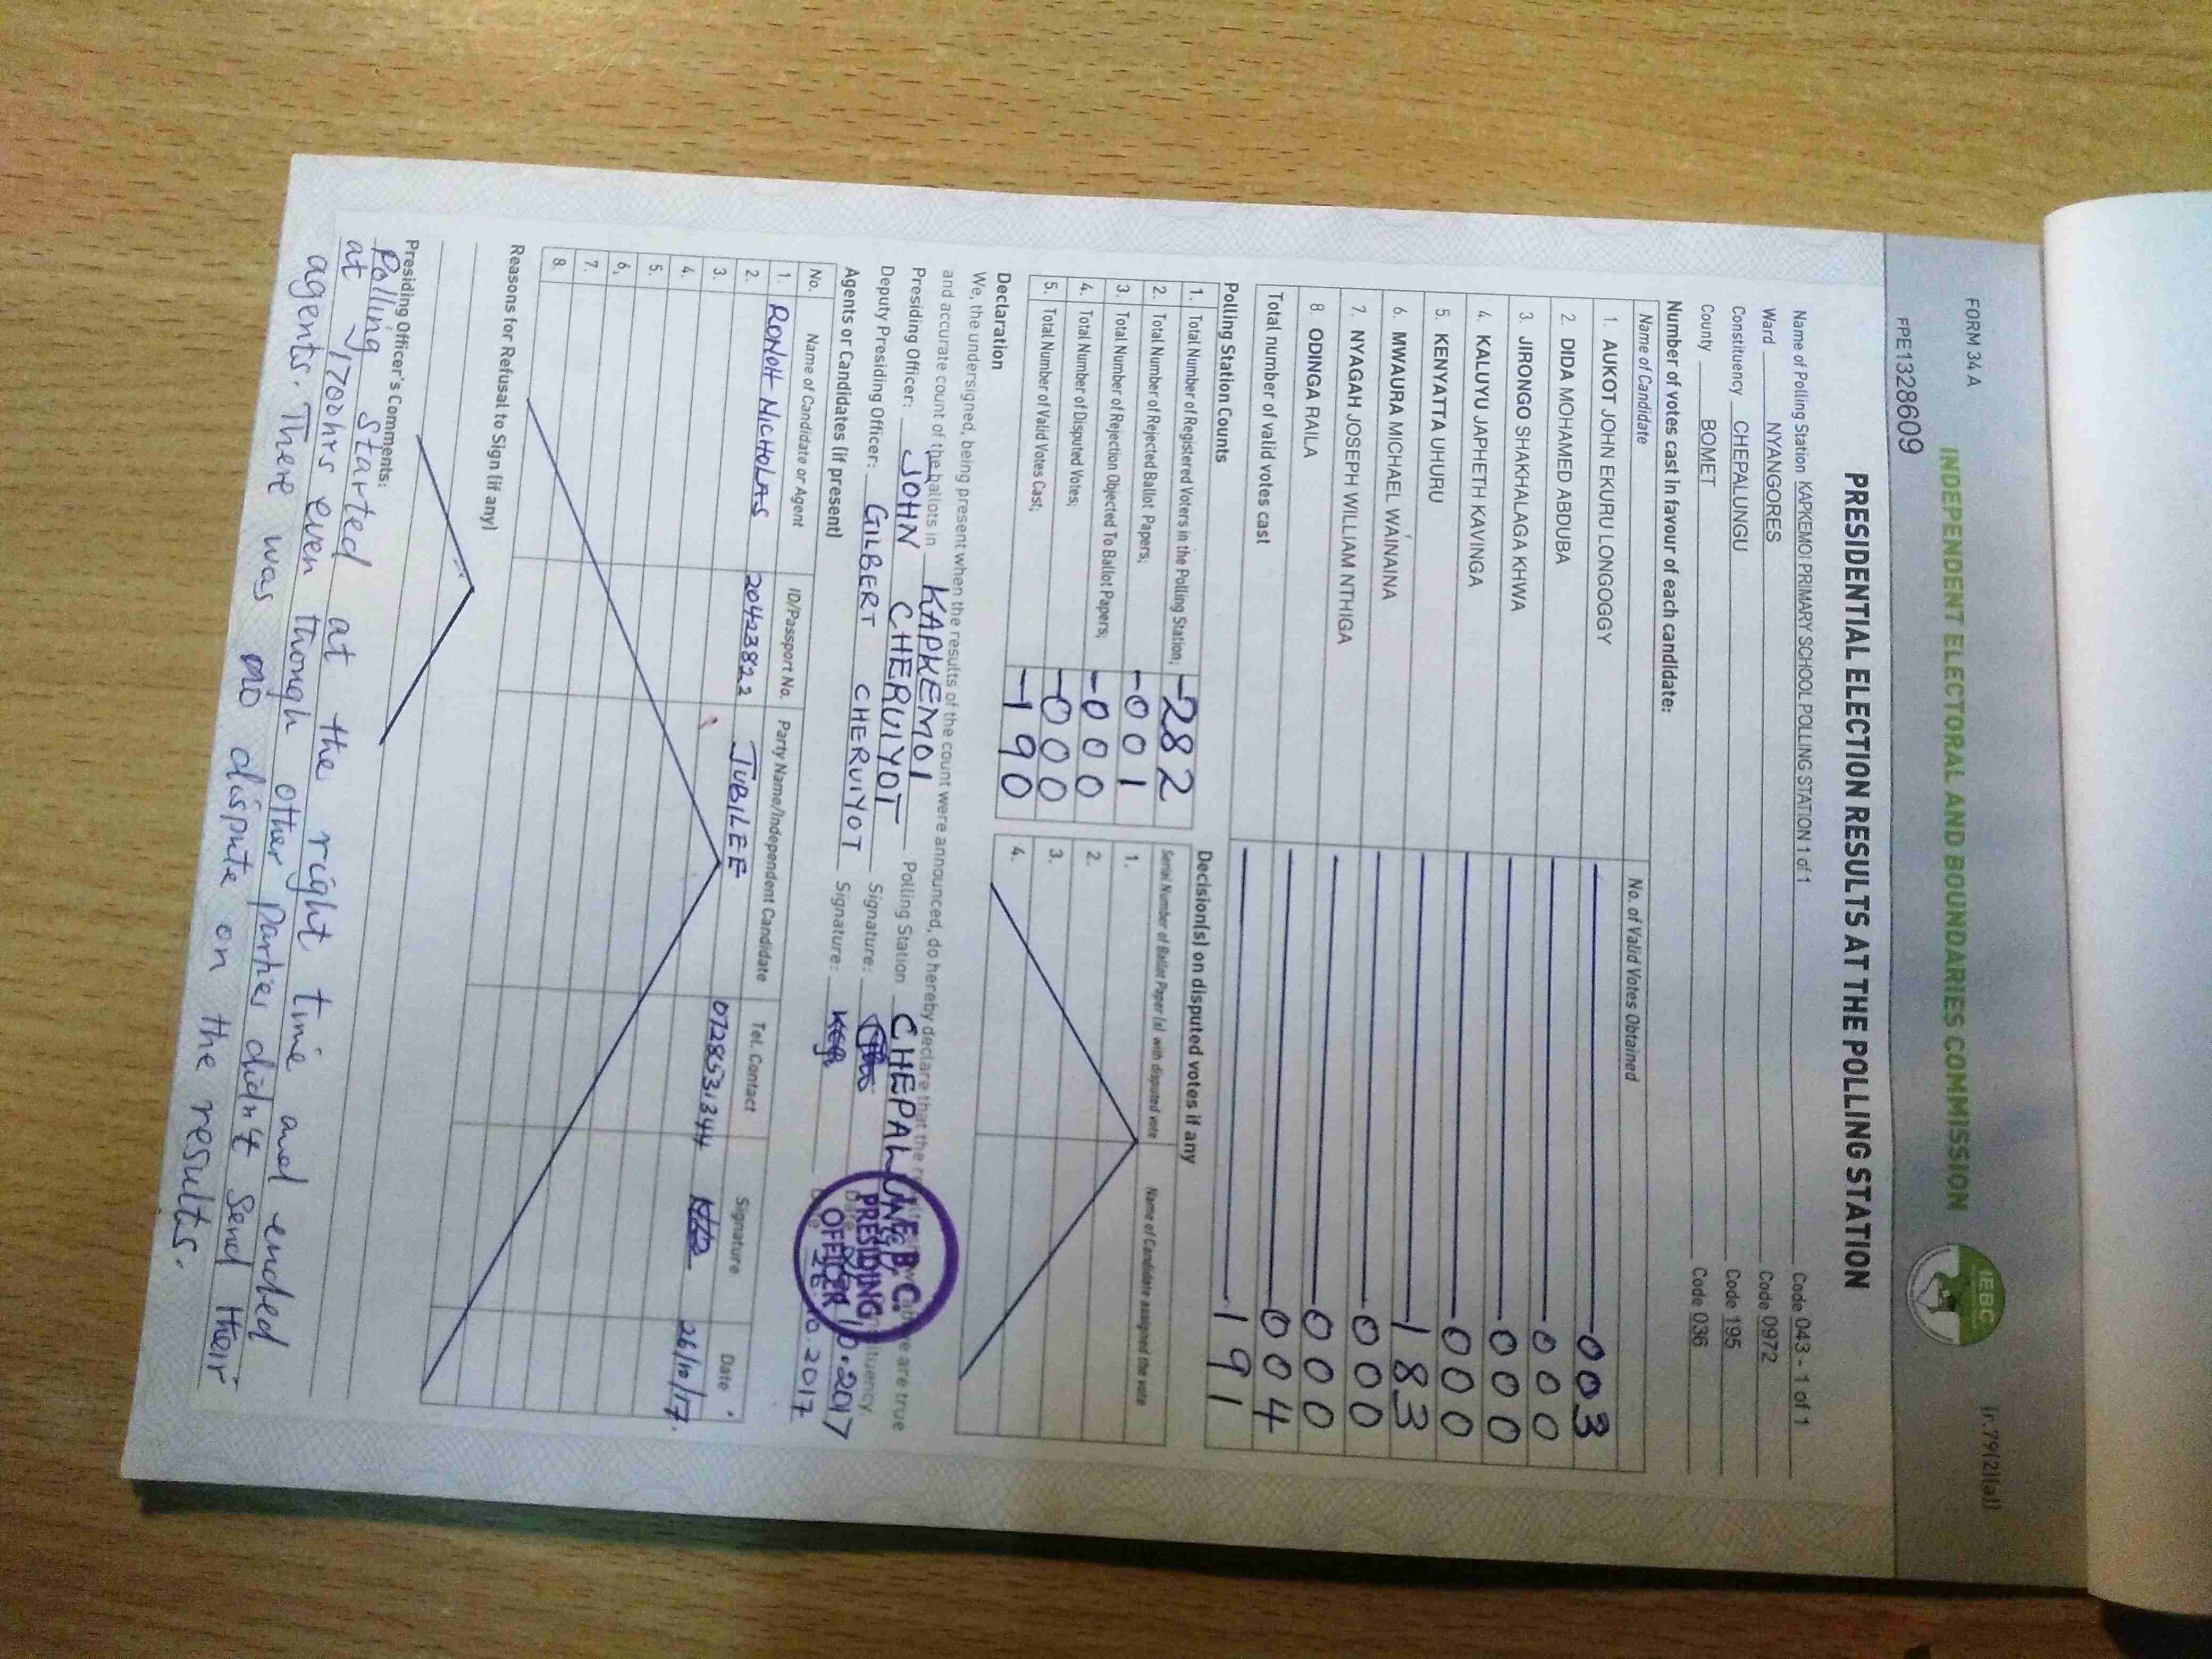 FORM 34 A
(r.79(2)(a))
INDEPENDENT ELECTORAL AND BOUNDARIES COMMISSION
IEBC
FPE1328609
PRESIDENTIAL ELECTION RESULTS AT THE POLLING STATION
Name of Polling Station KAPKEMOI PRIMARY SCHOOL POLLING STATION 1 of 1 Code 043 - 1 of 1
Ward NYANGORES Code 0972
Constituency CHEPALUNGU Code 195
County BOMET Code 036
Number of votes cast in favour of each candidate:
Name of Candidate No. of Valid Votes Obtained
1. AUKOT JOHN EKURU LONGOGGY 003
2. DIDA MOHAMED ABDUBA 000
3. JIRONGO SHAKHALAGA KHWA 000
4. KALUYU JAPHETH KAVINGA 000
5. KENYATTA UHURU 183
6. MWAURA MICHAEL WAINAINA 000
7. NYAGAH JOSEPH WILLIAM NTHIGA 000
8. ODINGA RAILA 004
Total number of valid votes cast 191
Polling Station Counts
1. Total Number of Registered Voters in the Polling Station; -282
2. Total Number of Rejected Ballot Papers; -001
3. Total Number of Rejection Objected To Ballot Papers; -000
4. Total Number of Disputed Votes; -000
5. Total Number of Valid Votes Cast; -190
Decision(s) on disputed votes if any
Serial Number of Ballot Paper (s) with disputed vote Name of Candidate assigned the vote
1.
2.
3.
4.
Declaration
We, the undersigned, being present when the results of the count were announced, do hereby declare that the are true
and accurate count of the ballots in KAPKEMOI Polling Station CHEPALUNGU
Presiding Officer: JOHN CHERUIYOT Signature: 10.2017
Deputy Presiding Officer: GILBERT CHERUIYOT Signature: 26.10.2017
I.E.B.C.
PRESIDING
OFFICER
Agents or Candidates (if present)
No. Name of Candidate or Agent ID/Passport No. Party Name/Independent Candidate Tel. Contact Signature Date
1. RONOH NICHOLAS 20423822 JUBILEE 0728531344 26/10/17
2.
3.
4.
5.
6.
7.
8.
Reasons for Refusal to Sign (if any)
Presiding Officer's Comments:
Polling started at the right time and ended
at 1700hrs even though other parties didn't send their
agents. There was no dispute on the results.